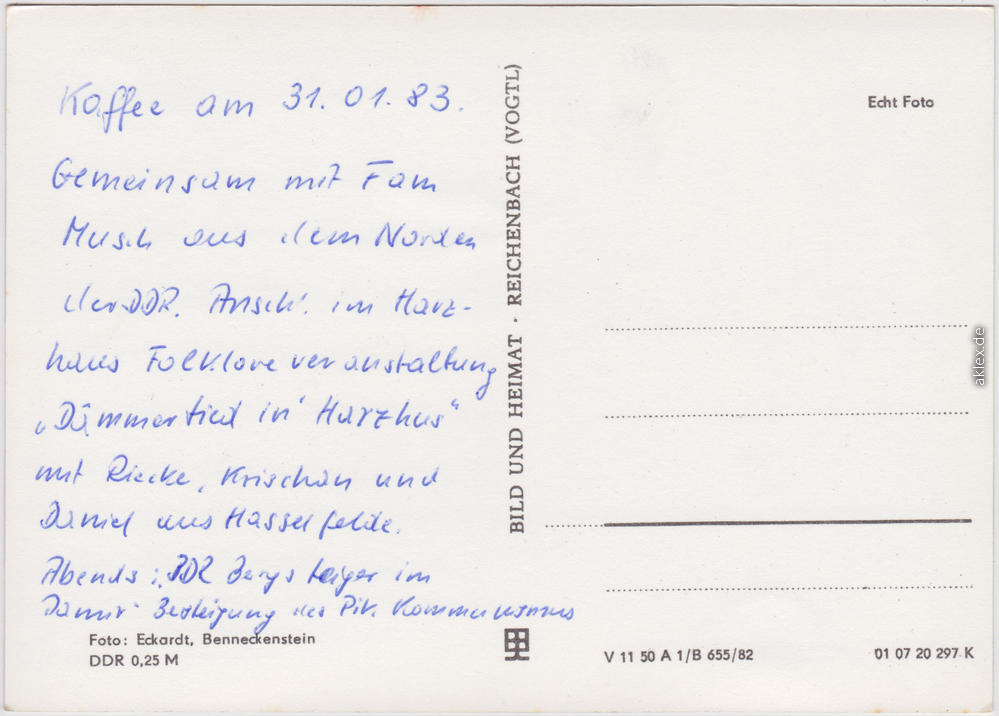 Kaffee am 31.01.83.
Gemeinsam mit Fam
Musch aus dem Norden
der DDR. Ansch. im Harz-
haus Folkloreveranstaltung
„Dämmertied in' Harzhus“
mit Riecke, Krischan und
Daniel aus Hasselfelde.
Abends: DDR Bergsteiger im
Pamir Besteigung des Pik Kommunismus
Foto: Eckardt, Benneckenstein
DDR 0,25 M
BILD UND HEIMAT · REICHENBACH (VOGTL)
Echt Foto
V 11 50 A 1/B 655/82
01 07 20 297 K
aklex.de